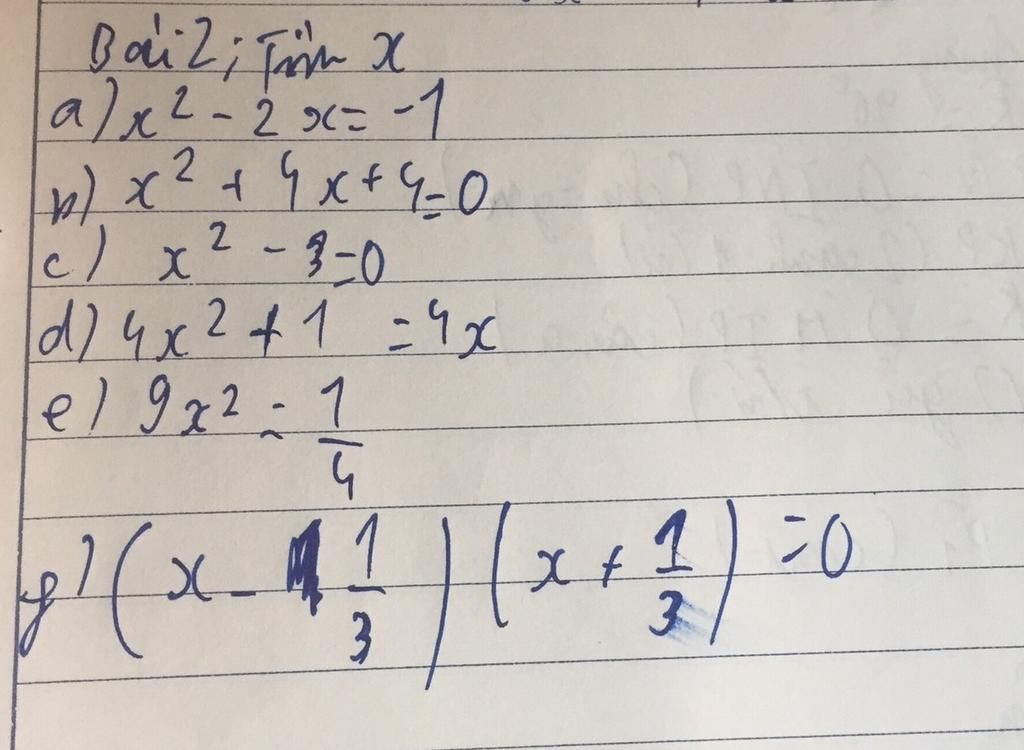 Bài 2; Tìm x
a) x² - 2x = -1
b) x² + 4x + 4 = 0
c) x² - 9 = 0
d) 4x² + 1 = 4x
e) 9x² = 1/4
g) (x - 1/3) (x + 1/3) = 0